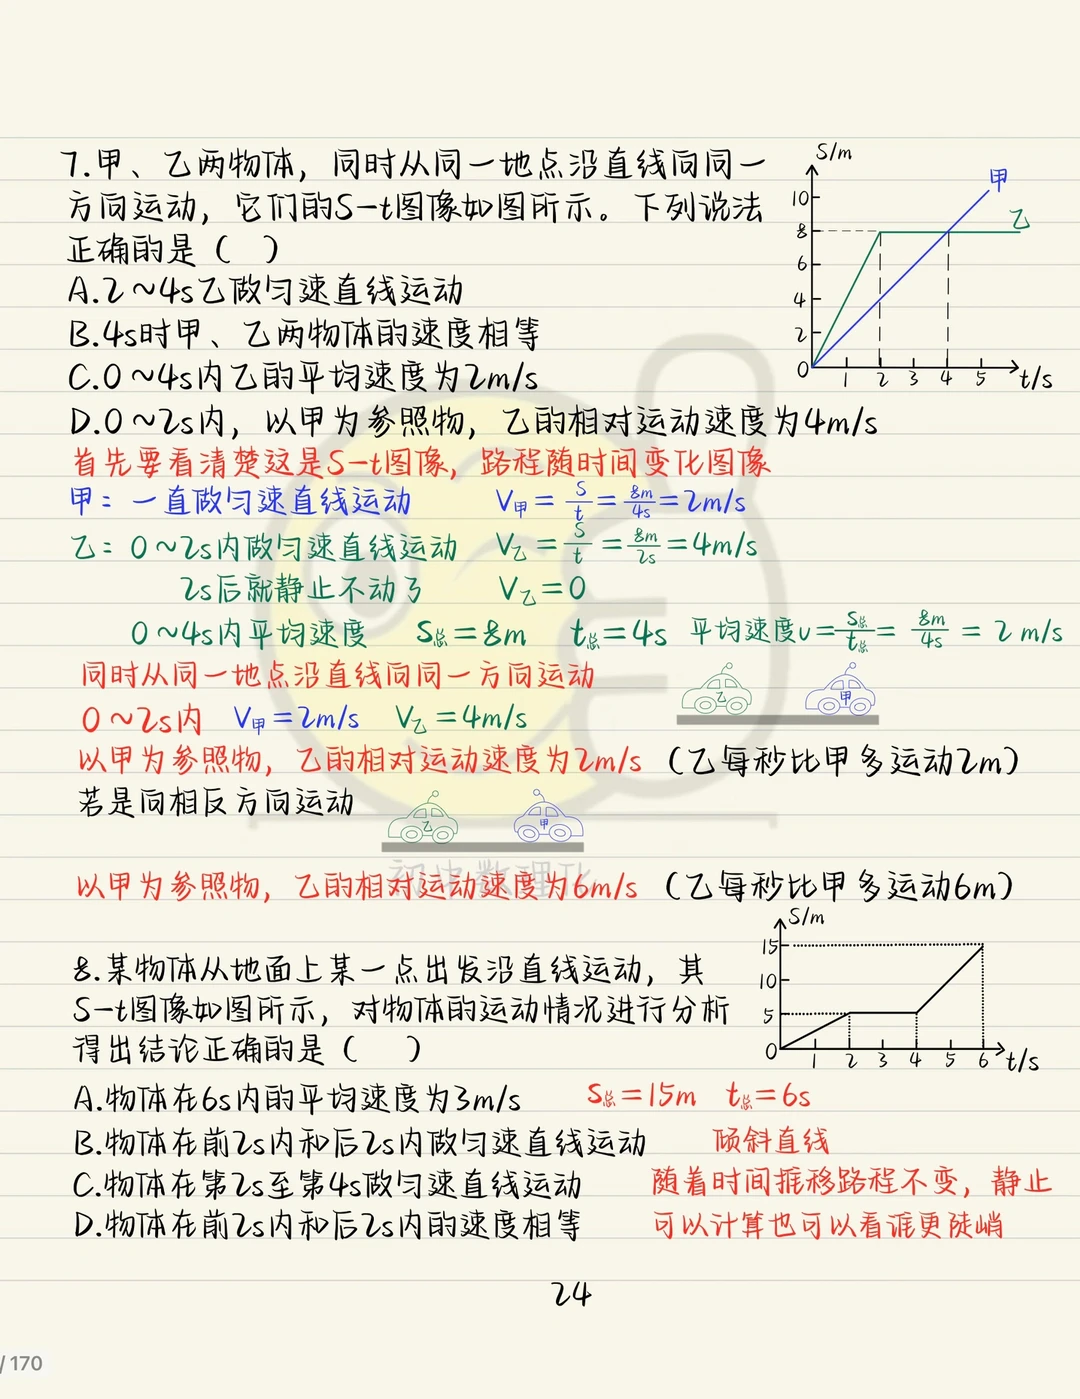 7.甲、乙两物体，同时从同一地点沿直线向同一
方向运动，它们的S-t图像如图所示。下列说法
正确的是（ ）
A.2~4s乙做匀速直线运动
B.4s时甲、乙两物体的速度相等
C.0~4s内乙的平均速度为2m/s
D.0~2s内，以甲为参照物，乙的相对运动速度为4m/s
S/m
甲
10
乙
8
6
4
2
0 1 2 3 4 5 t/s
首先要看清楚这是S-t图像，路程随时间变化图像
甲：一直做匀速直线运动 V甲=S/t=8m/4s=2m/s
乙：0~2s内做匀速直线运动 V乙=S/t=8m/2s=4m/s
2s后就静止不动了 V乙=0
0~4s内平均速度 S总=8m t总=4s 平均速度v=S总/t总=8m/4s=2m/s
同时从同一地点沿直线向同一方向运动
乙 甲
0~2s内 V甲=2m/s V乙=4m/s
以甲为参照物，乙的相对运动速度为2m/s（乙每秒比甲多运动2m）
若是向相反方向运动
乙 甲
初中数理化
以甲为参照物，乙的相对运动速度为6m/s（乙每秒比甲多运动6m）
8.某物体从地面上某一点出发沿直线运动，其
S-t图像如图所示，对物体的运动情况进行分析
得出结论正确的是（ ）
S/m
15
10
5
0 1 2 3 4 5 6 t/s
A.物体在6s内的平均速度为3m/s S总=15m t总=6s
B.物体在前2s内和后2s内做匀速直线运动 倾斜直线
C.物体在第2s至第4s做匀速直线运动 随着时间推移路程不变，静止
D.物体在前2s内和后2s内的速度相等 可以计算也可以看谁更陡峭
24
/170